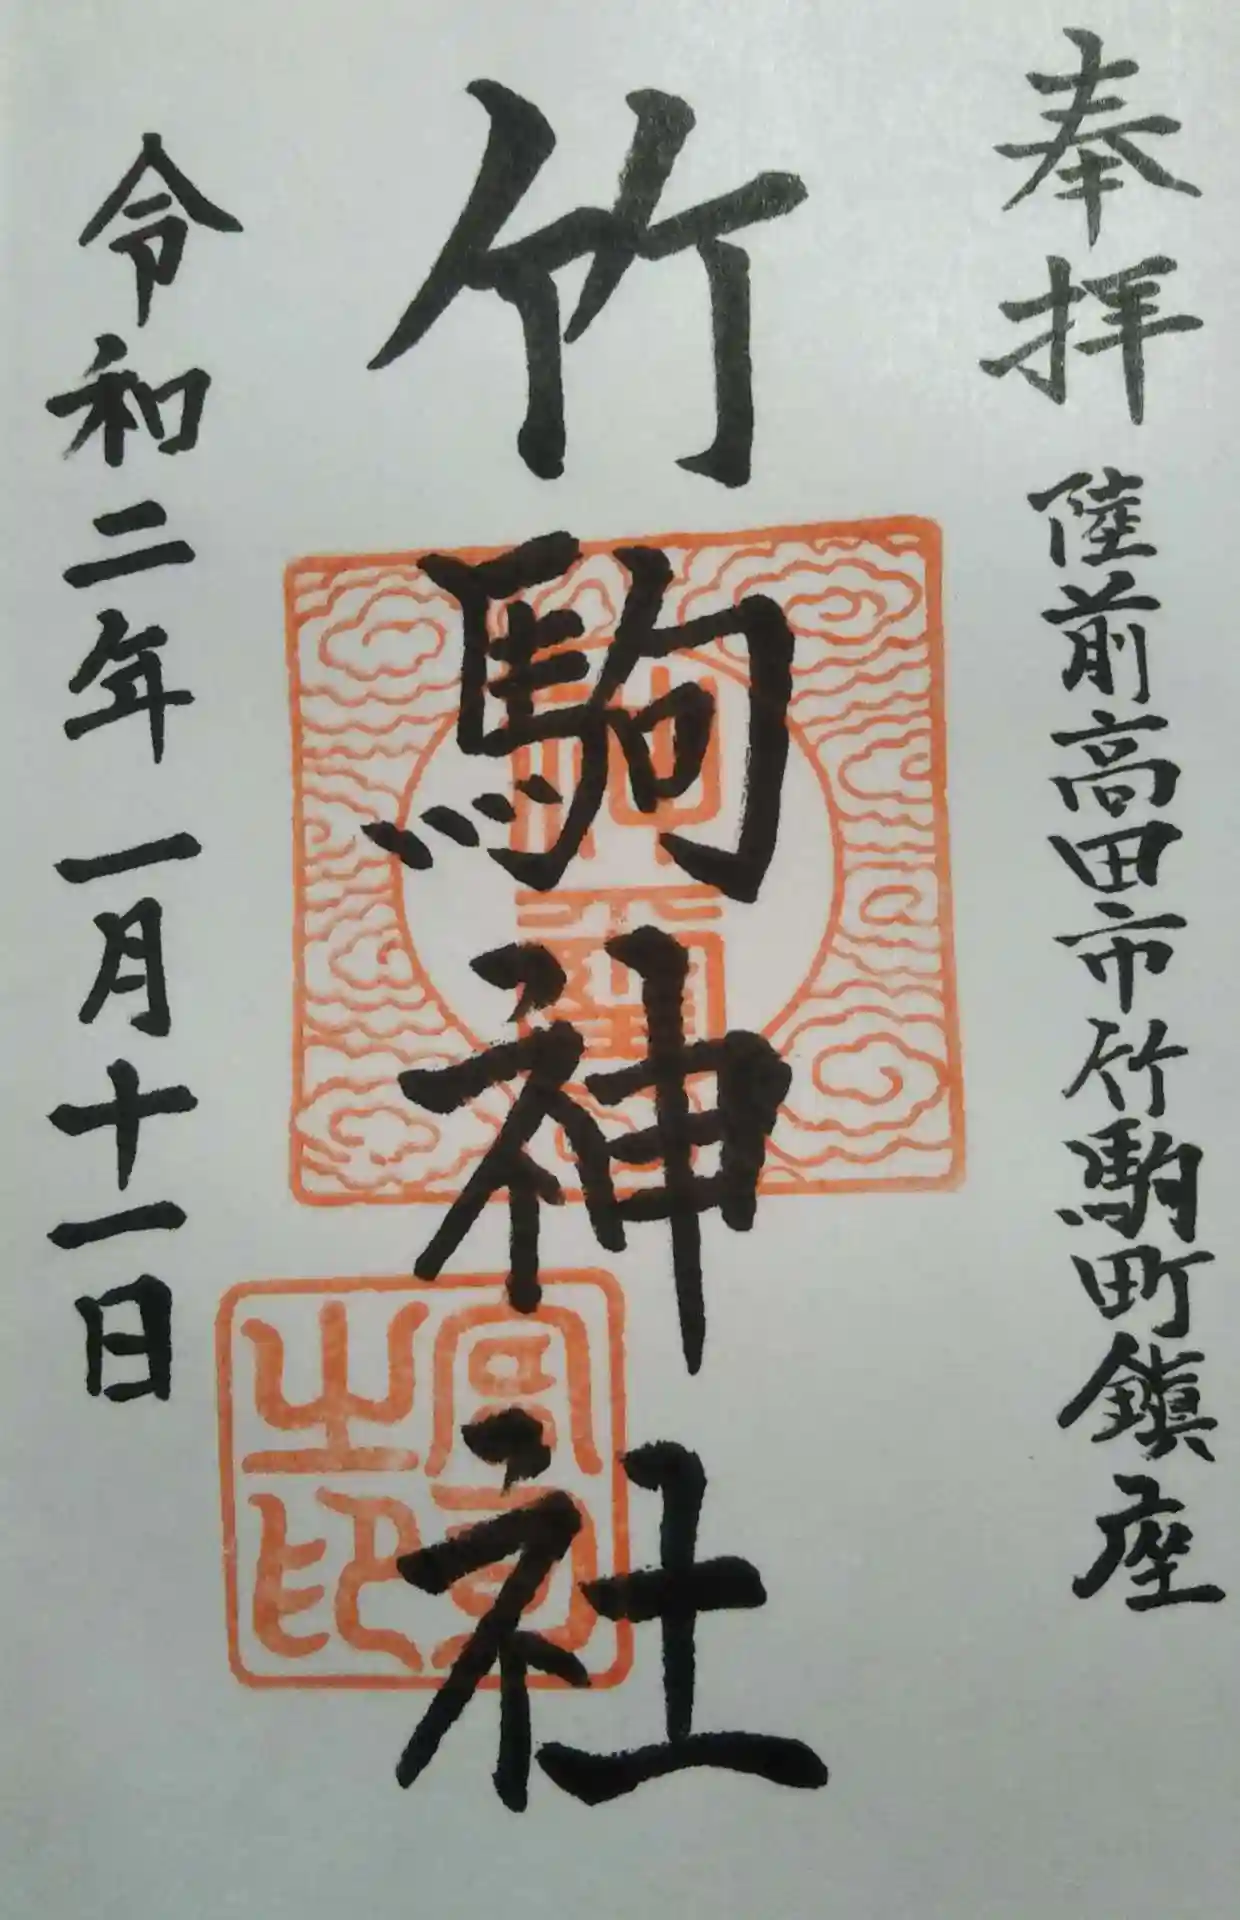 奉拝 陸前高田市竹駒町鎮座
竹駒神社
令和二年一月十一日
宮司之印